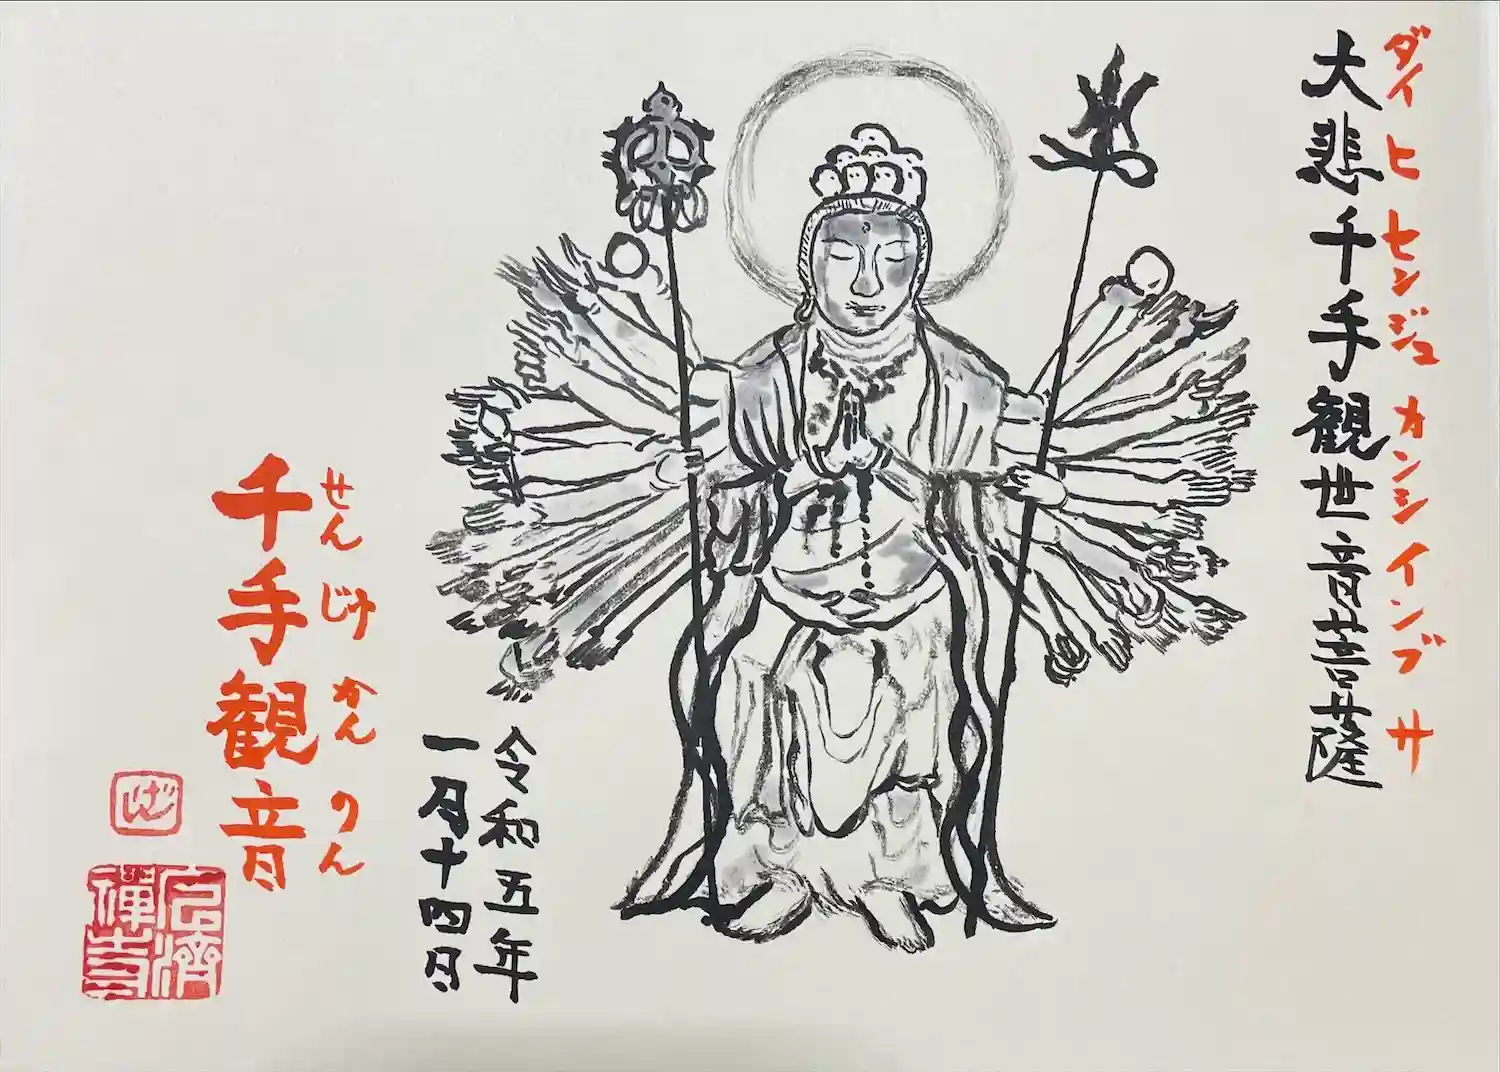 ダイ ヒ センジュ カンシ イン ブ サ
大悲千手観世音菩薩
令和五年
一月十四日
せん じゅ かん のん
千手観音